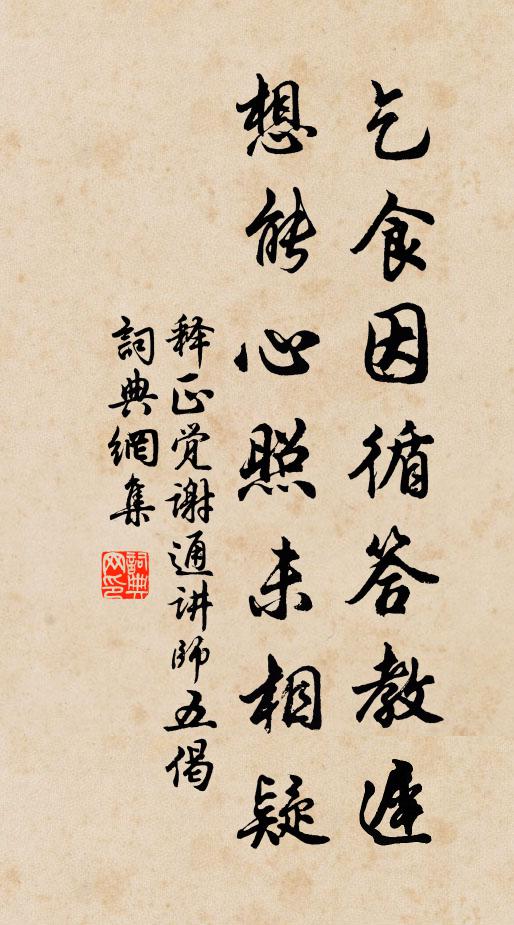 乞食因循答教遲
想能心照未相疑
释正觉謝通讲師五偈
詞典網集
詞典网印